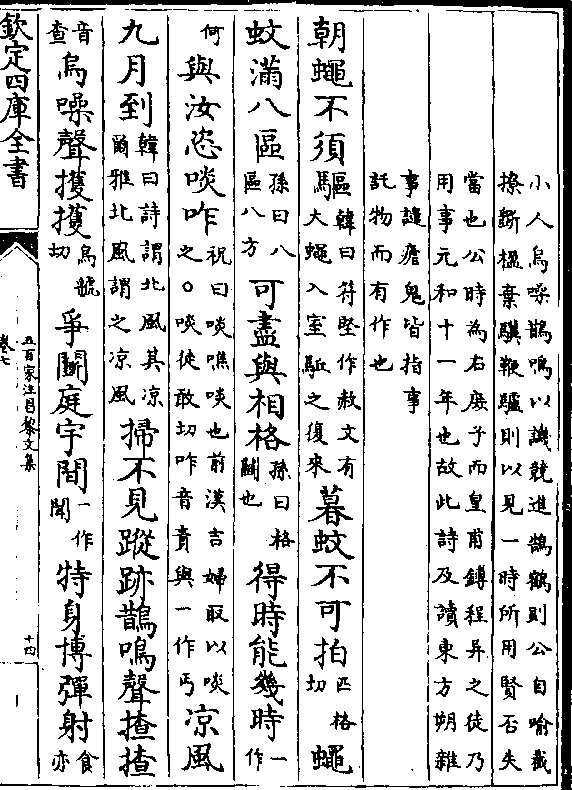 小人烏噪鵲鳴以譏競進鵠鶴則公自喻截
撩斵楹棄騏鞭驢則以見一時所用賢否失
當也公時為右庶子而皇甫鎛程异之徒乃
用事元和十一年也故此詩及讀東方朔雜
事譴瘧鬼皆指事
託物而有作也
朝蠅不須驅韓曰符堅作赦文有大蠅入室駈之復來暮蚊不可拍匹格切蠅
蚊滿八區孫曰八區八方可盡與相格孫曰格鬭也得時能幾時一作
何與汝恣啖咋祝曰啖噍啖也前漢吉婦取以啖之○啖徒敢切咋音責與一作丐凉風
九月到韓曰詩謂北風其凉爾雅北風謂之凉風掃不見蹤跡鵲鳴聲揸揸
音查烏噪聲擭擭烏虢切爭鬭庭宇間一作閒持身博彈射食亦
欽定四庫全書
五百家注昌黎文集
卷七
十四